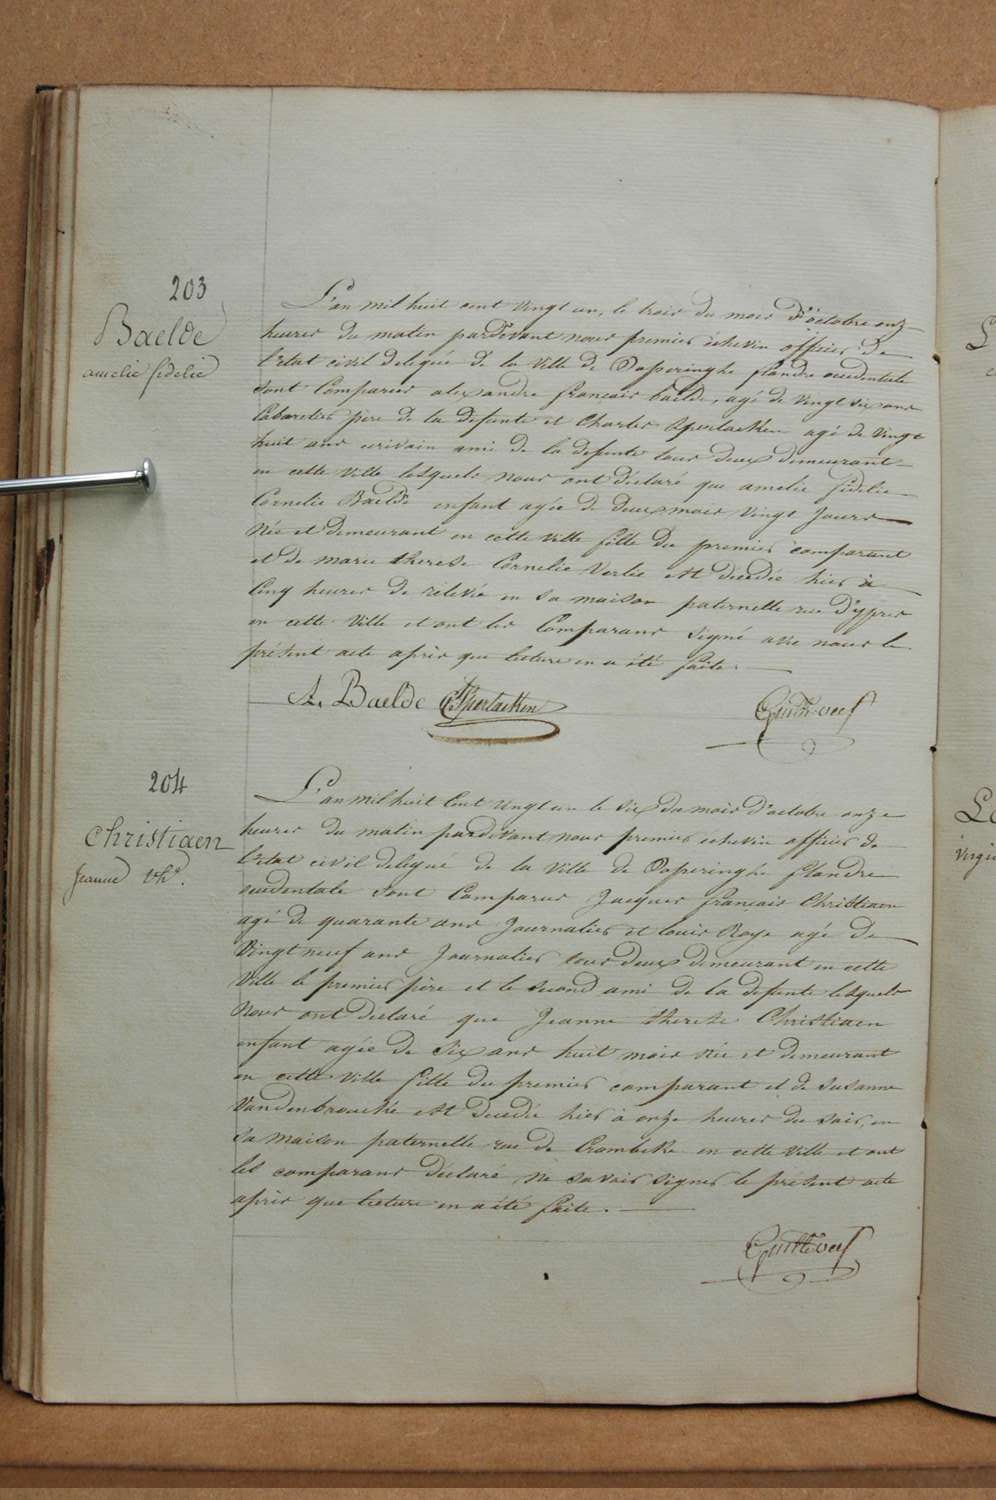 203
Baelde
amelie fidelie
L'an mil huit cent vingt un, le trois du mois d'octobre onz
heures du matin pardevant nous premier échevin officier de
l'état civil delegué de la ville de Poperinghe flandre occidentale
sont comparus alexandre francois baelde, agé de vingt six ans
Cabaretier père de la defunte et Charles agé de vingt
huit ans ecrivain ami de la defunte tous deux demeurant
en cette ville lesquels nous ont déclaré que amelie fidelie
Cornelie Baelde enfant agée de deux mois vingt jours
Née et demeurant en cette ville fille du premier comparant
et de marie therese Cornelie Verlie est decedée hier à
Cinq heures de relevée en sa maison paternelle rue d'ypres
en cette ville et ont les Comparans signé avec nous le
présent acte après que lecture en a été faite.
A. Baelde
204
Christiaen
Jeanne thse.
L'an mil huit Cent vingt un le six du mois d'octobre onze
heures du matin pardevant nous premier echevin officier de
l'etat civil delegué de la ville de Poperinghe flandre
occidentale sont comparus Jacques françois Christiaen
agé de quarante ans Journalier et louis Roye agé de
Vingt neuf ans Journalier tous deux demeurant en cette
Ville le premier père et le second ami de la defunte lesquels
Nous ont declaré que Jeanne therese Christiaen
enfant agée de six ans huit mois née et demeurant
en cette ville fille du premier comparant et de susanne
Vandenbrouckie est decedé hier à onze heures du soir, en
sa maison paternelle rue de Crombeke en cette ville et ont
les comparans declaré ne savoir signer le présent acte
après que lecture en a été faite.